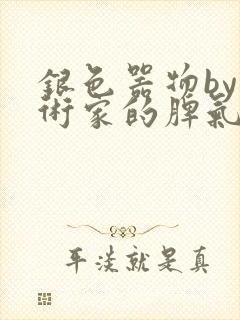 銀色器物by
術家的脾氣
平淡就是真